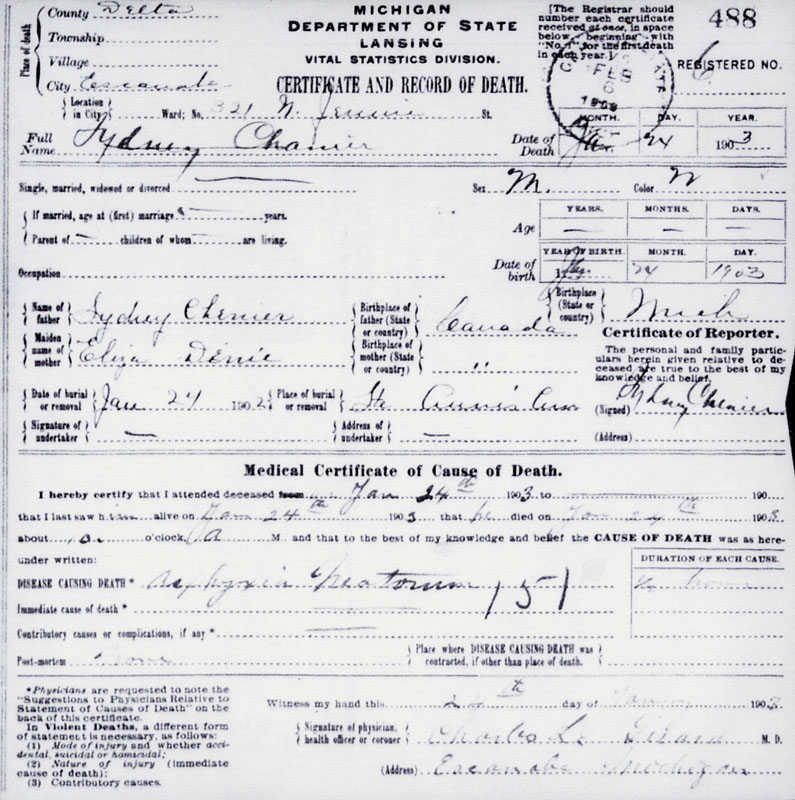 Place of death
County Delta
Township
Village
City Escanaba
MICHIGAN
DEPARTMENT OF STATE
LANSING
VITAL STATISTICS DIVISION.
CERTIFICATE AND RECORD OF DEATH.
[The Registrar should
number each certificate
received at once, in space
below, beginning with
"No. 1" for the first death
in each year.]
488
REGISTERED NO. 6
FEB
6
1903
Location in City Ward; No. 321 N. Jennie St.
Full Name Sydney Chenier
Date of Death
MONTH. DAY. YEAR.
Jan 24 1903
Single, married, widowed or divorced
Sex M. Color W
If married, age at (first) marriage years.
Parent of children of whom are living.
Age
YEARS. MONTHS. DAYS.
— — —
Occupation
Date of birth
YEAR OF BIRTH. MONTH. DAY.
Jan 24 1903
Name of father Sydney Chenier
Birthplace of father (State or country) Canada
Birthplace (State or country) Mich
Maiden name of mother Eliza Denie
Birthplace of mother (State or country) "
Certificate of Reporter.
The personal and family particulars
herein given relative to deceased
are true to the best of my
knowledge and belief.
(Signed) Sydney Chenier
(Address)
Date of burial or removal Jan 24 190
Place of burial or removal
Signature of undertaker —
Address of undertaker —
Medical Certificate of Cause of Death.
I hereby certify that I attended deceased from Jan 24th 1903 to 190
that I last saw him alive on Jan 24th 1903 that he died on Jan 24th 1903
about 10 o'clock A M., and that to the best of my knowledge and belief the CAUSE OF DEATH was as hereunder
written:
DURATION OF EACH CAUSE.
DISEASE CAUSING DEATH* Asphyxia Neatorum 151
Immediate cause of death*
Contributory causes or complications, if any*
Post-mortem None
Place where DISEASE CAUSING DEATH was contracted, if other than place of death.
*Physicians are requested to note the
"Suggestions to Physicians Relative to
Statement of Causes of Death" on the
back of this certificate.
In Violent Deaths, a different form
of statement is necessary, as follows:
(1) Mode of injury and whether accidental,
suicidal or homicidal;
(2) Nature of injury (immediate
cause of death);
(3) Contributory causes.
Witness my hand this 24th day of January 1903
Signature of physician, health officer or coroner Charles L. Girard M. D.
(Address) Escanaba Michigan